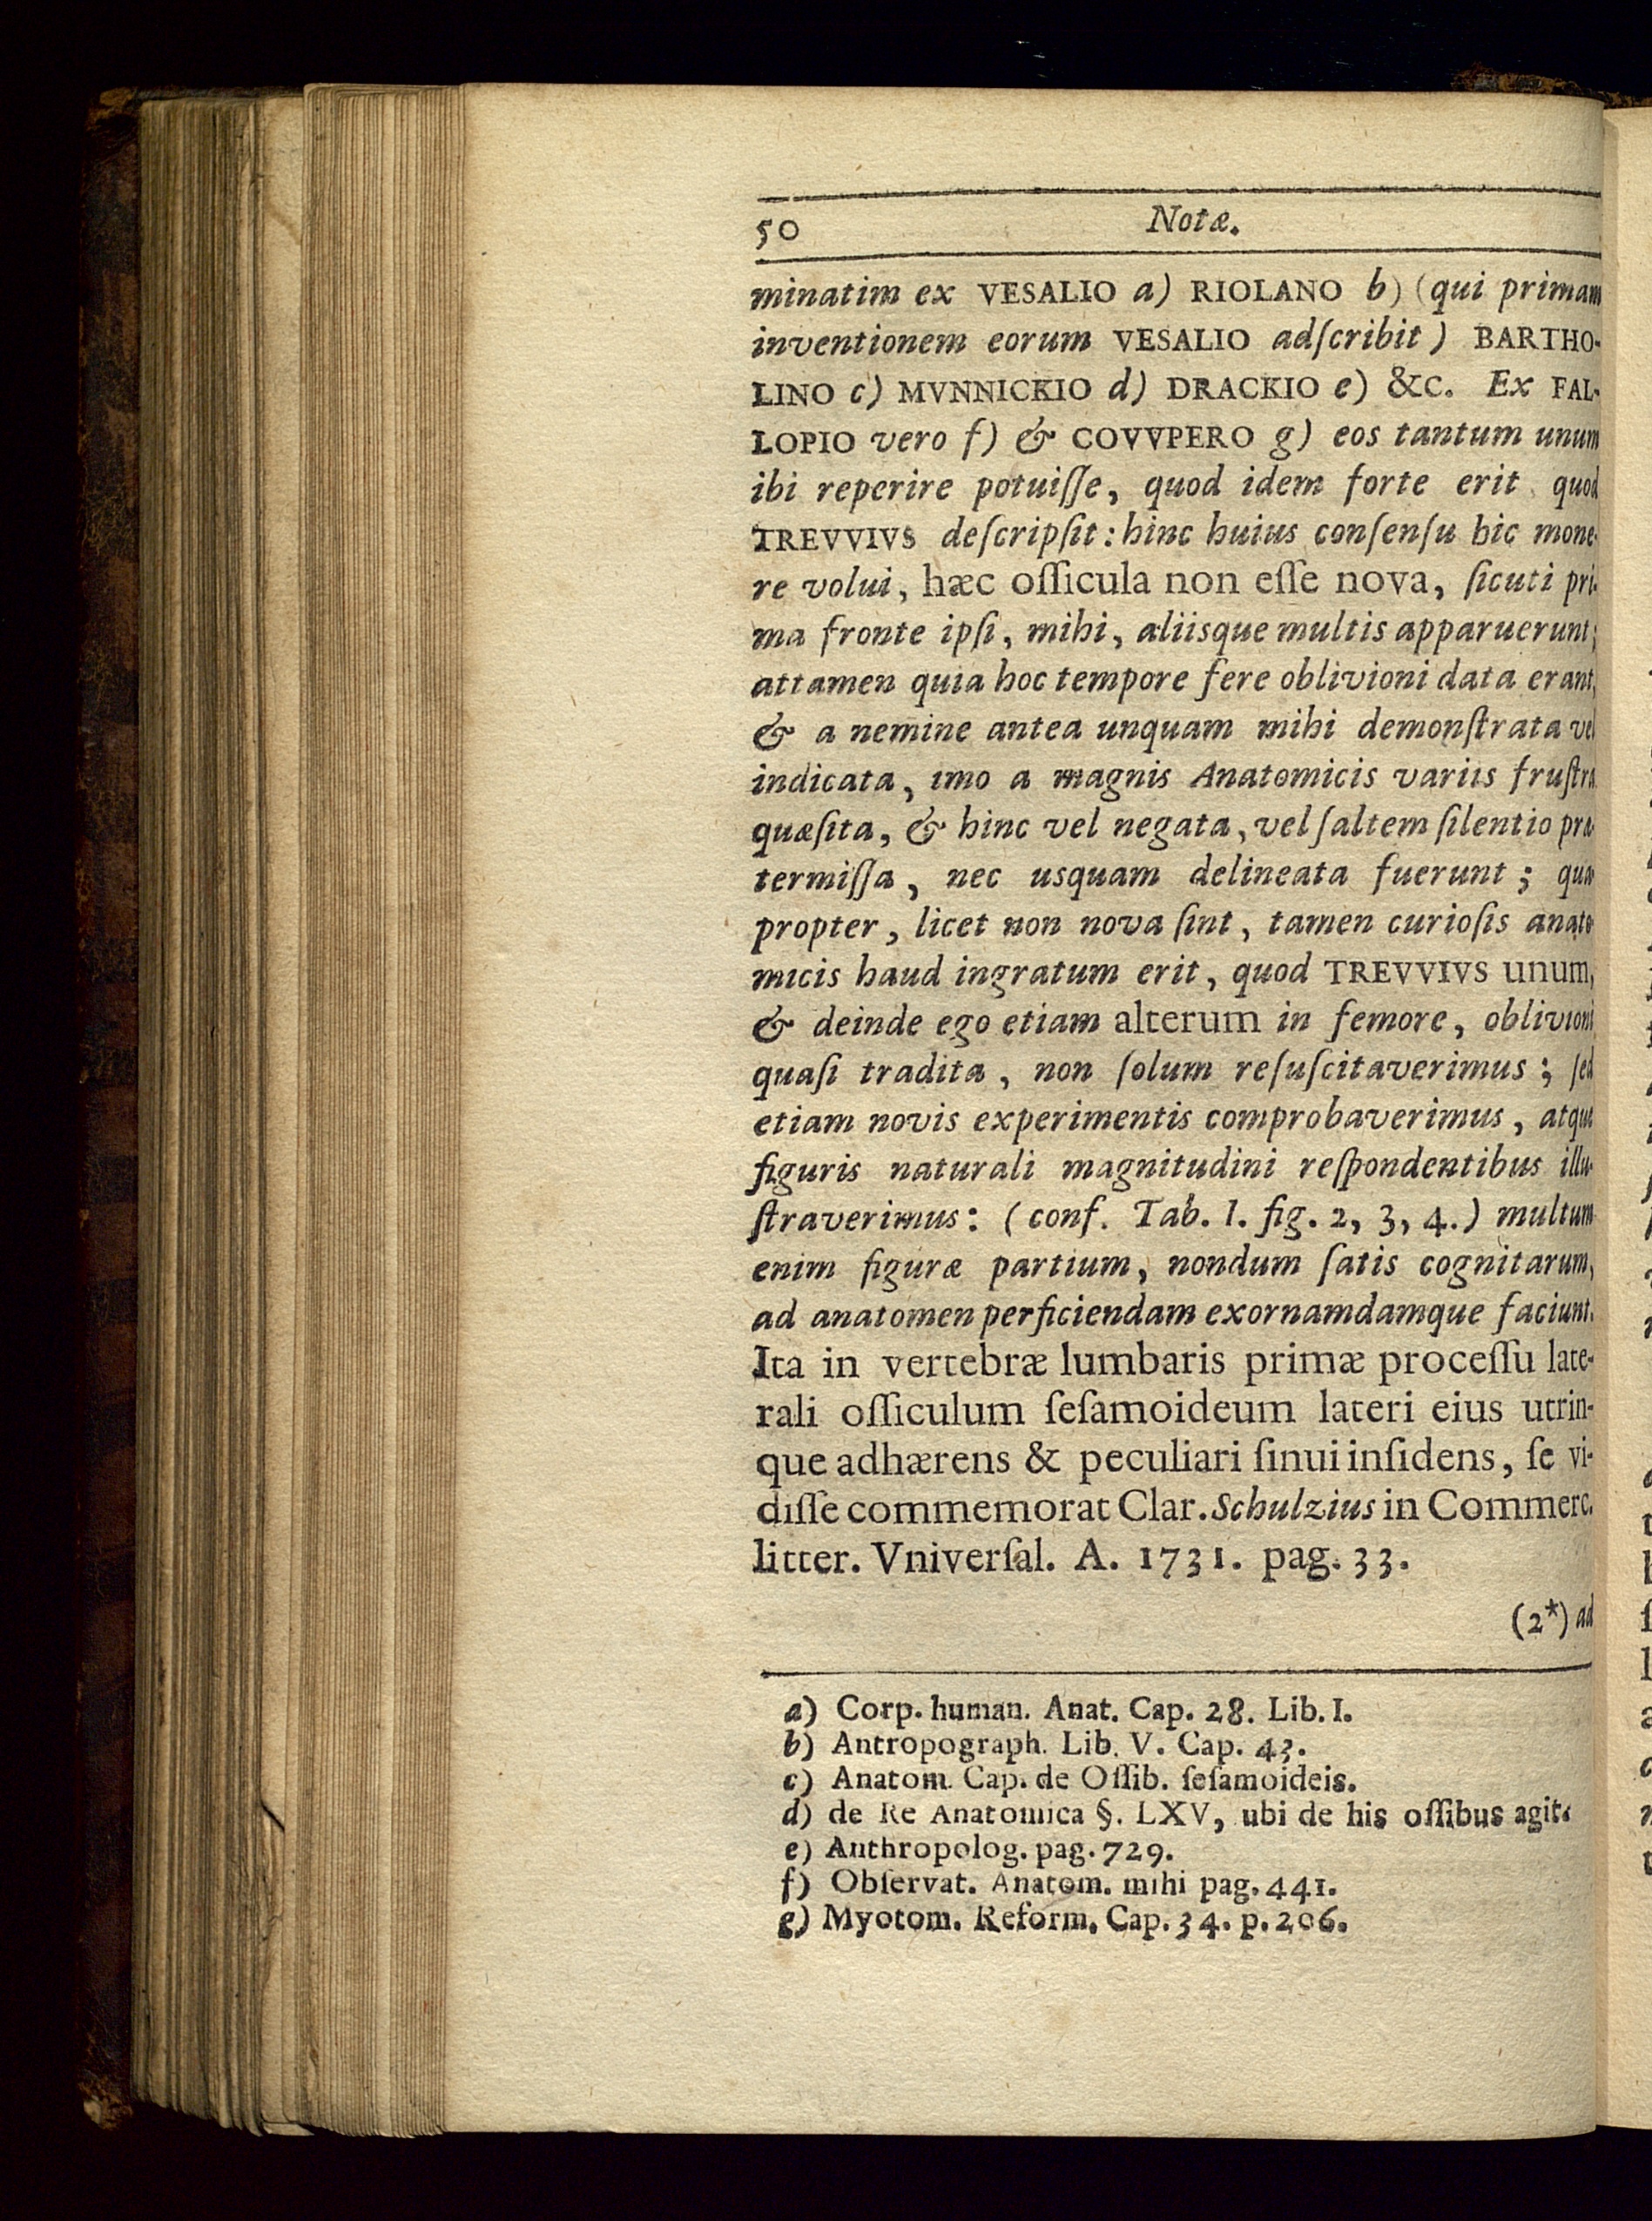 50 Notæ.
minatim ex VESALIO a) RIOLANO b) (qui primam
inventionem eorum VESALIO adſcribit) BARTHO-
LINO c) MVNNICKIO d) DRACKIO e) &c. Ex FAL-
LOPIO vero f) & COVVPERO g) eos tantum unum
ibi reperire potuiſſe, quod idem forte erit quod
TREVVIVS deſcripſit: hinc huius conſenſu hic mone-
re volui, hæc oſſicula non eſſe nova, ſicuti pri-
ma fronte ipſi, mihi, aliisque multis apparuerunt;
attamen quia hoc tempore fere oblivioni data erant,
& a nemine antea unquam mihi demonſtrata vel
indicata, imo a magnis Anatomicis variis fruſtra
quæſita, & hinc vel negata, vel ſaltem ſilentio præ-
termiſſa, nec usquam delineata fuerunt; qua-
propter, licet non nova ſint, tamen curioſis anato-
micis haud ingratum erit, quod TREVVIVS unum,
& deinde ego etiam alterum in femore, oblivioni
quaſi tradita, non ſolum reſuſcitaverimus; ſed
etiam novis experimentis comprobaverimus, atque
figuris naturali magnitudini reſpondentibus illu-
ſtraverimus: (conf. Tab. I. fig. 2, 3, 4.) multum
enim figuræ partium, nondum ſatis cognitarum,
ad anatomen perficiendam exornamdamque faciunt.
Ita in vertebræ lumbaris primæ proceſſu late-
rali oſſiculum ſeſamoideum lateri eius utrin-
que adhærens & peculiari ſinui inſidens, ſe vi-
diſſe commemorat Clar. Schulzius in Commerc.
litter. Vniverſal. A. 1731. pag. 33.
(2*) ad
a) Corp. human. Anat. Cap. 28. Lib. I.
b) Antropograph. Lib. V. Cap. 43.
c) Anatom. Cap. de Oſſib. ſeſamoideis.
d) de Re Anatomica §. LXV, ubi de his oſſibus agit.
e) Anthropolog. pag. 729.
f) Obſervat. Anatom. mihi pag. 441.
g) Myotom. Reform. Cap. 34. p. 206.